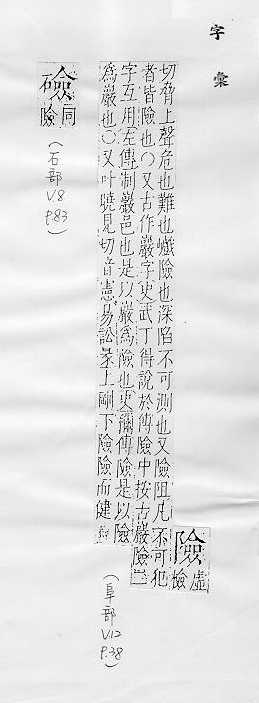 字彙
險
虛檢
切脅上聲危也難也巇險也深陷不可測也又險阻凡不可犯
者皆險也○又古作巖字史武丁得說於傅險中按古巖險二
字互用左傳制巖邑也是以巖爲險也史彌傅險是以險
爲巖也○又叶曉見切音憲易訟彖上剛下險險而健
(阜部 V12 P.38)
礆
同險
(石部 V.8 P.83)